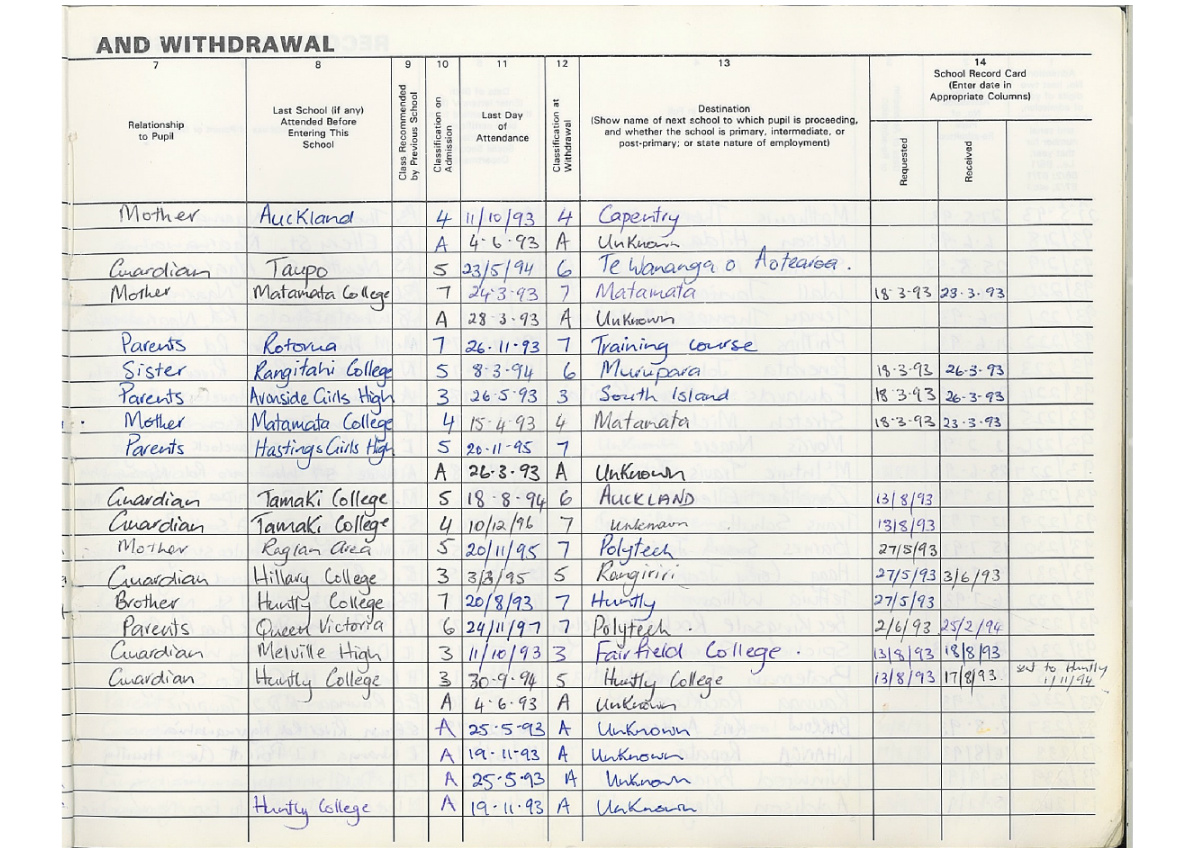 AND WITHDRAWAL
7 8 9 10 11 12 13 14
Relationship to Pupil
Last School (if any) Attended Before Entering This School
Class Recommended by Previous School
Classification on Admission
Last Day of Attendance
Classification at Withdrawal
Destination (Show name of next school to which pupil is proceeding, and whether the school is primary, intermediate, or post-primary; or state nature of employment)
School Record Card (Enter date in Appropriate Columns)
Requested
Received
Mother Auckland 4 11/10/93 4 Capentry
A 4·6·93 A UnKnown
Guardian Taupo 5 23/5/94 6 Te Wananga o Aotearoa.
Mother Matamata College 7 24·3·93 7 Matamata 18·3·93 23·3·93
A 28·3·93 A UnKnown
Parents Rotorua 7 26·11·93 7 Training course
Sister Rangitahi College 5 8·3·94 6 Murupara 18·3·93 26·3·93
Parents Avonside Girls High 3 26·5·93 3 South Island 18·3·93 26·3·93
Mother Matamata College 4 15·4·93 4 Matamata 18·3·93 23·3·93
Parents Hastings Girls High 5 20·11·95 7
A 26·3·93 A UnKnown
Guardian Tamaki College 5 18·8·94 6 AUCKLAND 13/8/93
Guardian Tamaki College 4 10/12/96 7 Unknown 13/8/93
Mother Raglan Area 5 20/11/95 7 Polytech 27/5/93
Guardian Hillary College 3 3/3/95 5 Rangiriri 27/5/93 3/6/93
Brother Huntly College 7 20/8/93 7 Huntly 27/5/93
Parents Queen Victoria 6 24/11/97 7 Polytech. 2/6/93 25/2/94
Guardian Melville High 3 11/10/93 3 Fairfield College. 13/8/93 18/8/93
Guardian Huntly College 3 30·9·94 5 Huntly College 13/8/93 17/8/93 sent to Huntly 1/11/94
A 4·6·93 A UnKnown
A 25·5·93 A UnKnown
A 19·11·93 A UnKnown
A 25·5·93 A UnKnown
Huntly College A 19·11·93 A UnKnown